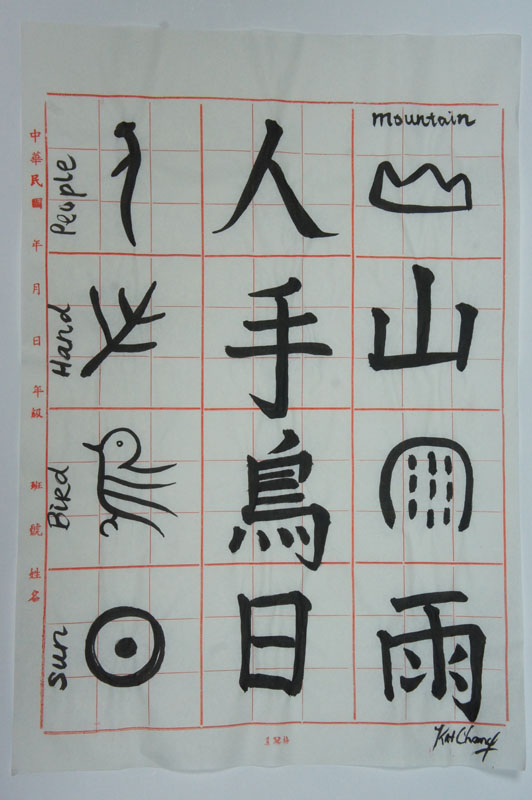 mountain
山
雨
人
手
鳥
日
People
Hand
Bird
Sun
中華民國 年 月 日 年級 班 號 姓名
Kat Chang